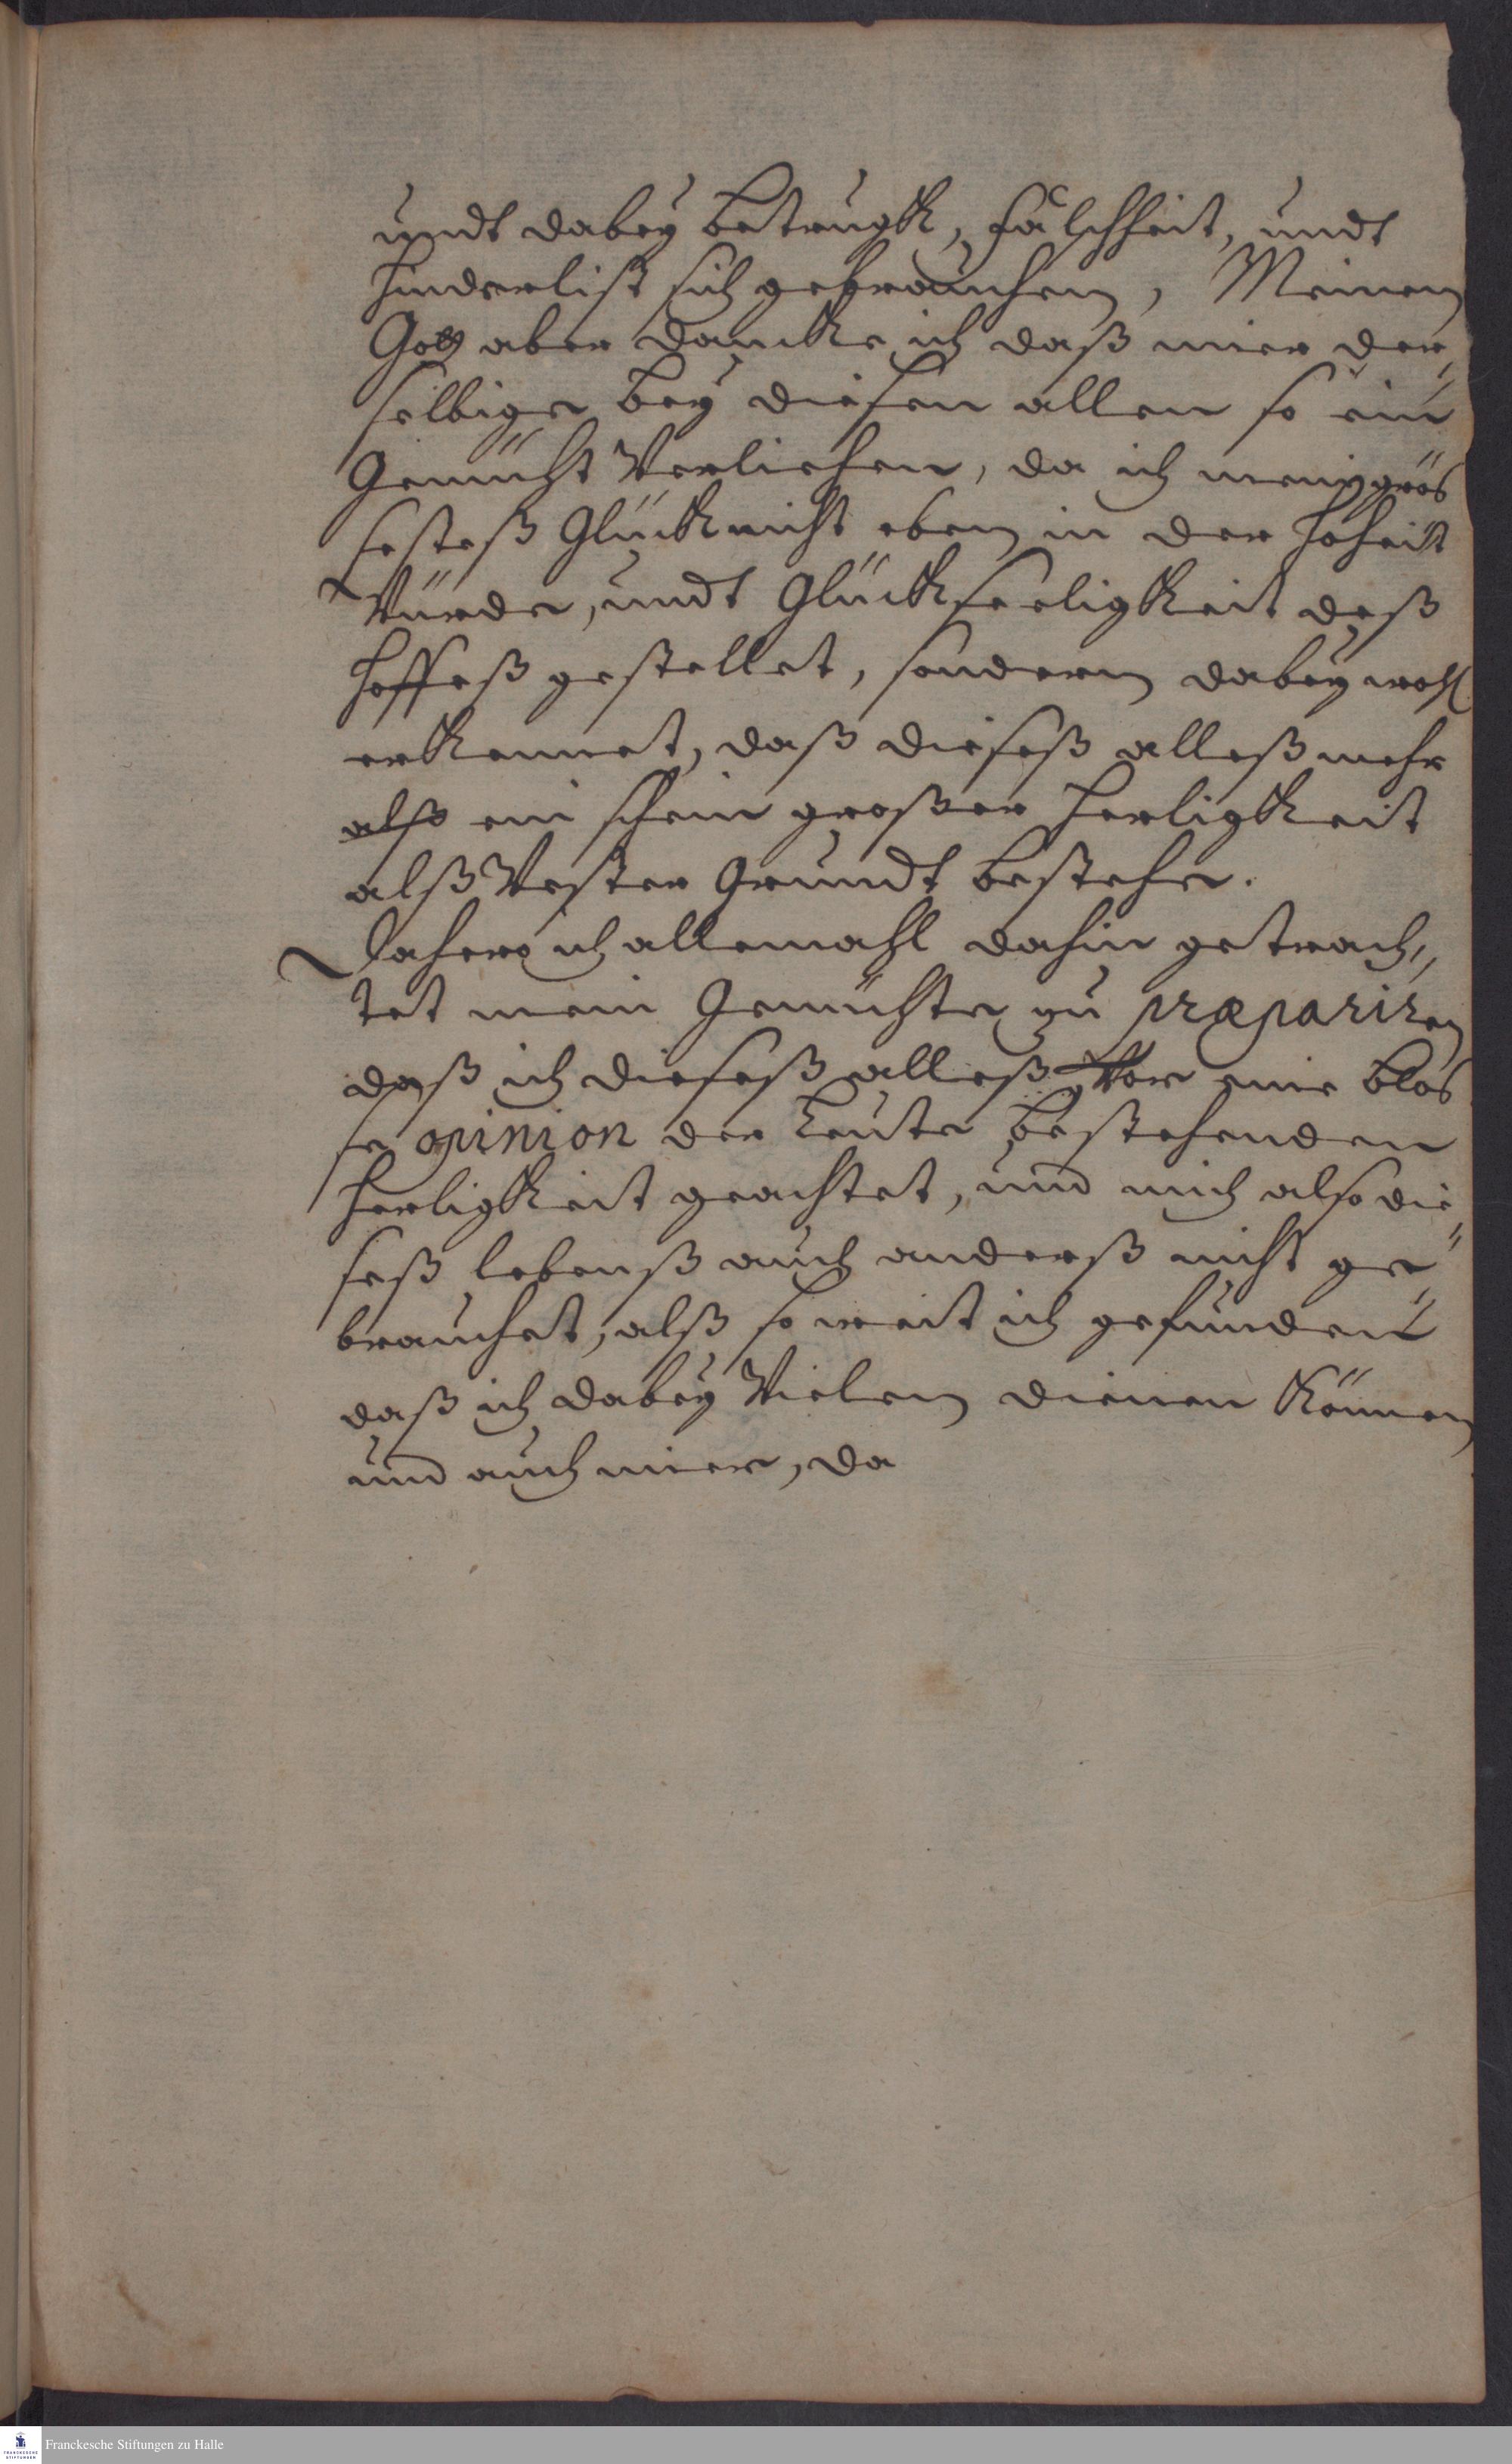 undt dabey betrugk, fälschheit, undt
hinderlist sich gebrauchen, Meinem
Gott aber dancke ich daß mier der„
selbige bey diesen allen so ein
Gemücht Verliehen, da ich mein grös
sesteß Glück nicht eben in der Hoheit
Würde, undt Glückseeligkeit deß
Hoffeß gestellet, sondern dabey wohl
erkennet, daß dieseß alleß mehr
alß ein schein großer Herligkeit
alß Vester Grundt bestehe.
Dahero ich allemahl dahin getrach„
tet mein Gemüchte zu præpariren
daß ich dieseß alleß Vor eine blos
se opinion der Leute bestehenden
Herligkeit geachtet, und mich also die
seß lebenß auch anderß nicht ge„
brauchet, alß so weit ich gefunden
daß ich dabey Vielen dienen können
und auch mier, da
Franckesche Stiftungen zu Halle